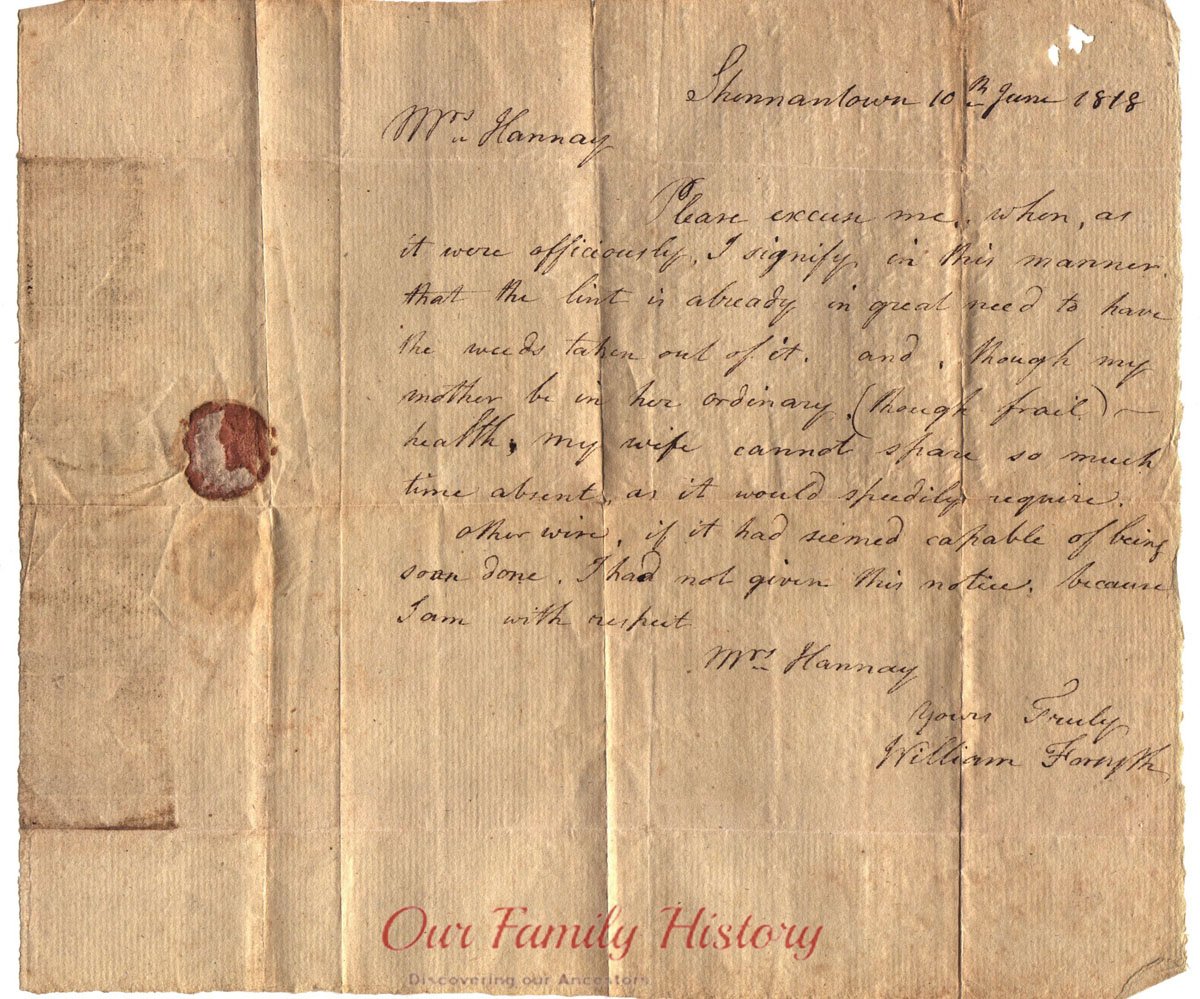 Shennantown 10th June 1818
Mrs Hannay
Please excuse me, when, as
it were officiously, I signify in this manner.
that the lint is already in great need to have
the weeds taken out of it. and, though my
mother be in her ordinary, (though frail) —
health, my wife cannot spare so much
time absent, as it would speedily require.
otherwise, if it had seemed capable of being
soon done, I had not given this notice, because
I am with respect
Mrs Hannay
Yours Truly
William Forsyth
Our Family History
Discovering our Ancestors